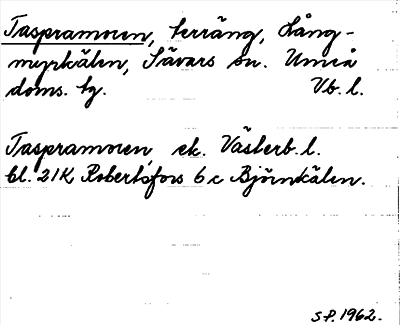 Taspramoren, terräng, Lång-
myrkälen, Sävars sn. Umeå
doms. hg. Vb. l.
Taspramoren, ek. Västerb. l.
bl. 21K Robertsfors 6 c Björnkälen.
S.P. 1962.